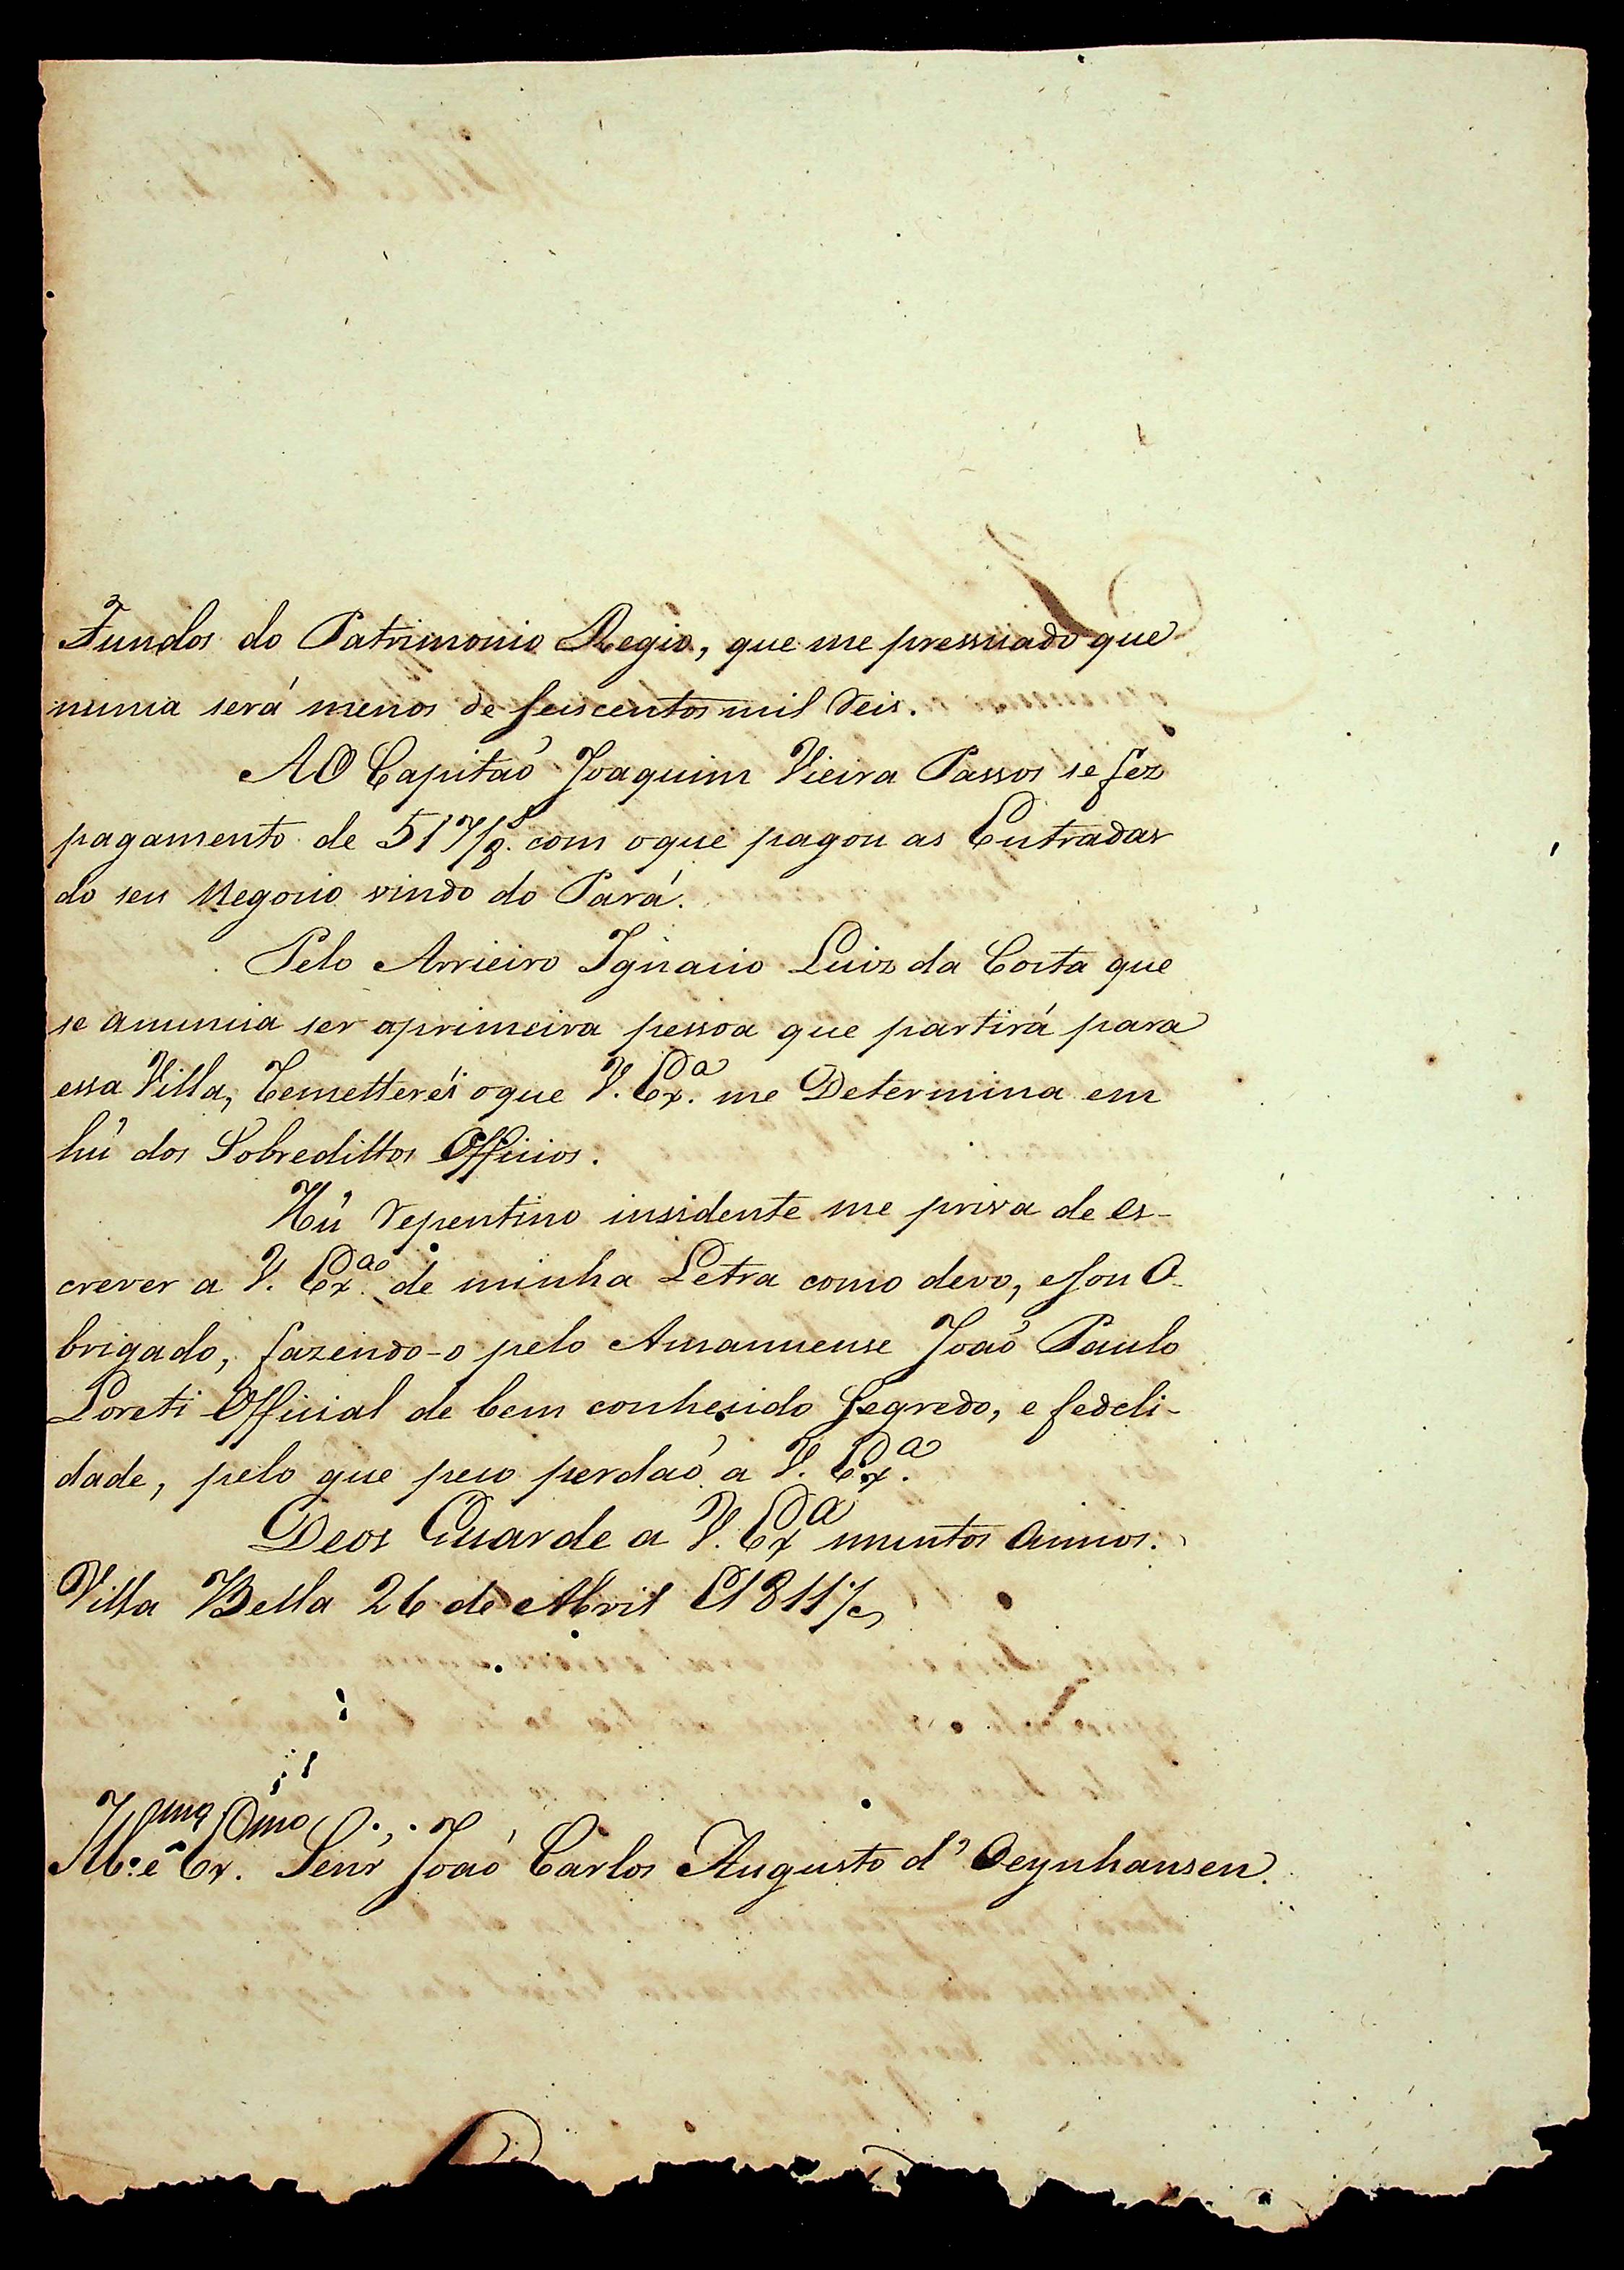 Fundos do Patrimonio Regio, que me pressuado que
nunca será menos de seiscentos mil reis.
AO Capitaõ Joaquim Vieira Passos se fez
pagamento de 517/8.ˢ com oque pagou as Entradas
do seu Negocio vindo do Pará.
Pelo Arrieiro Ignacio Luiz da Costa que
se anuncia ser aprimeira pessoa que partirá para
essa Villa, Remetterei oque V. Ex.ᵃ me Determina em
hũ dos Sobredittos Officios.
Hũ repentino insidente me priva de es-
crever a V. Ex.ᵃ de minha Letra como devo, esou O-
brigado, fazendo-o pelo Amanuense Joaõ Paulo
Loreti Official de bem conhecido segredo, e fedeli-
dade, pelo que peço perdaõ a V. Ex.ᵃ
Deos Guarde a V. Exᵃ muntos annos.
Villa Bella 26 de Abril 1811
Ill.ᵐᵒ e Ex.ᵐᵒ Senr̃ Joaõ Carlos Augusto d' Oeynhausen.